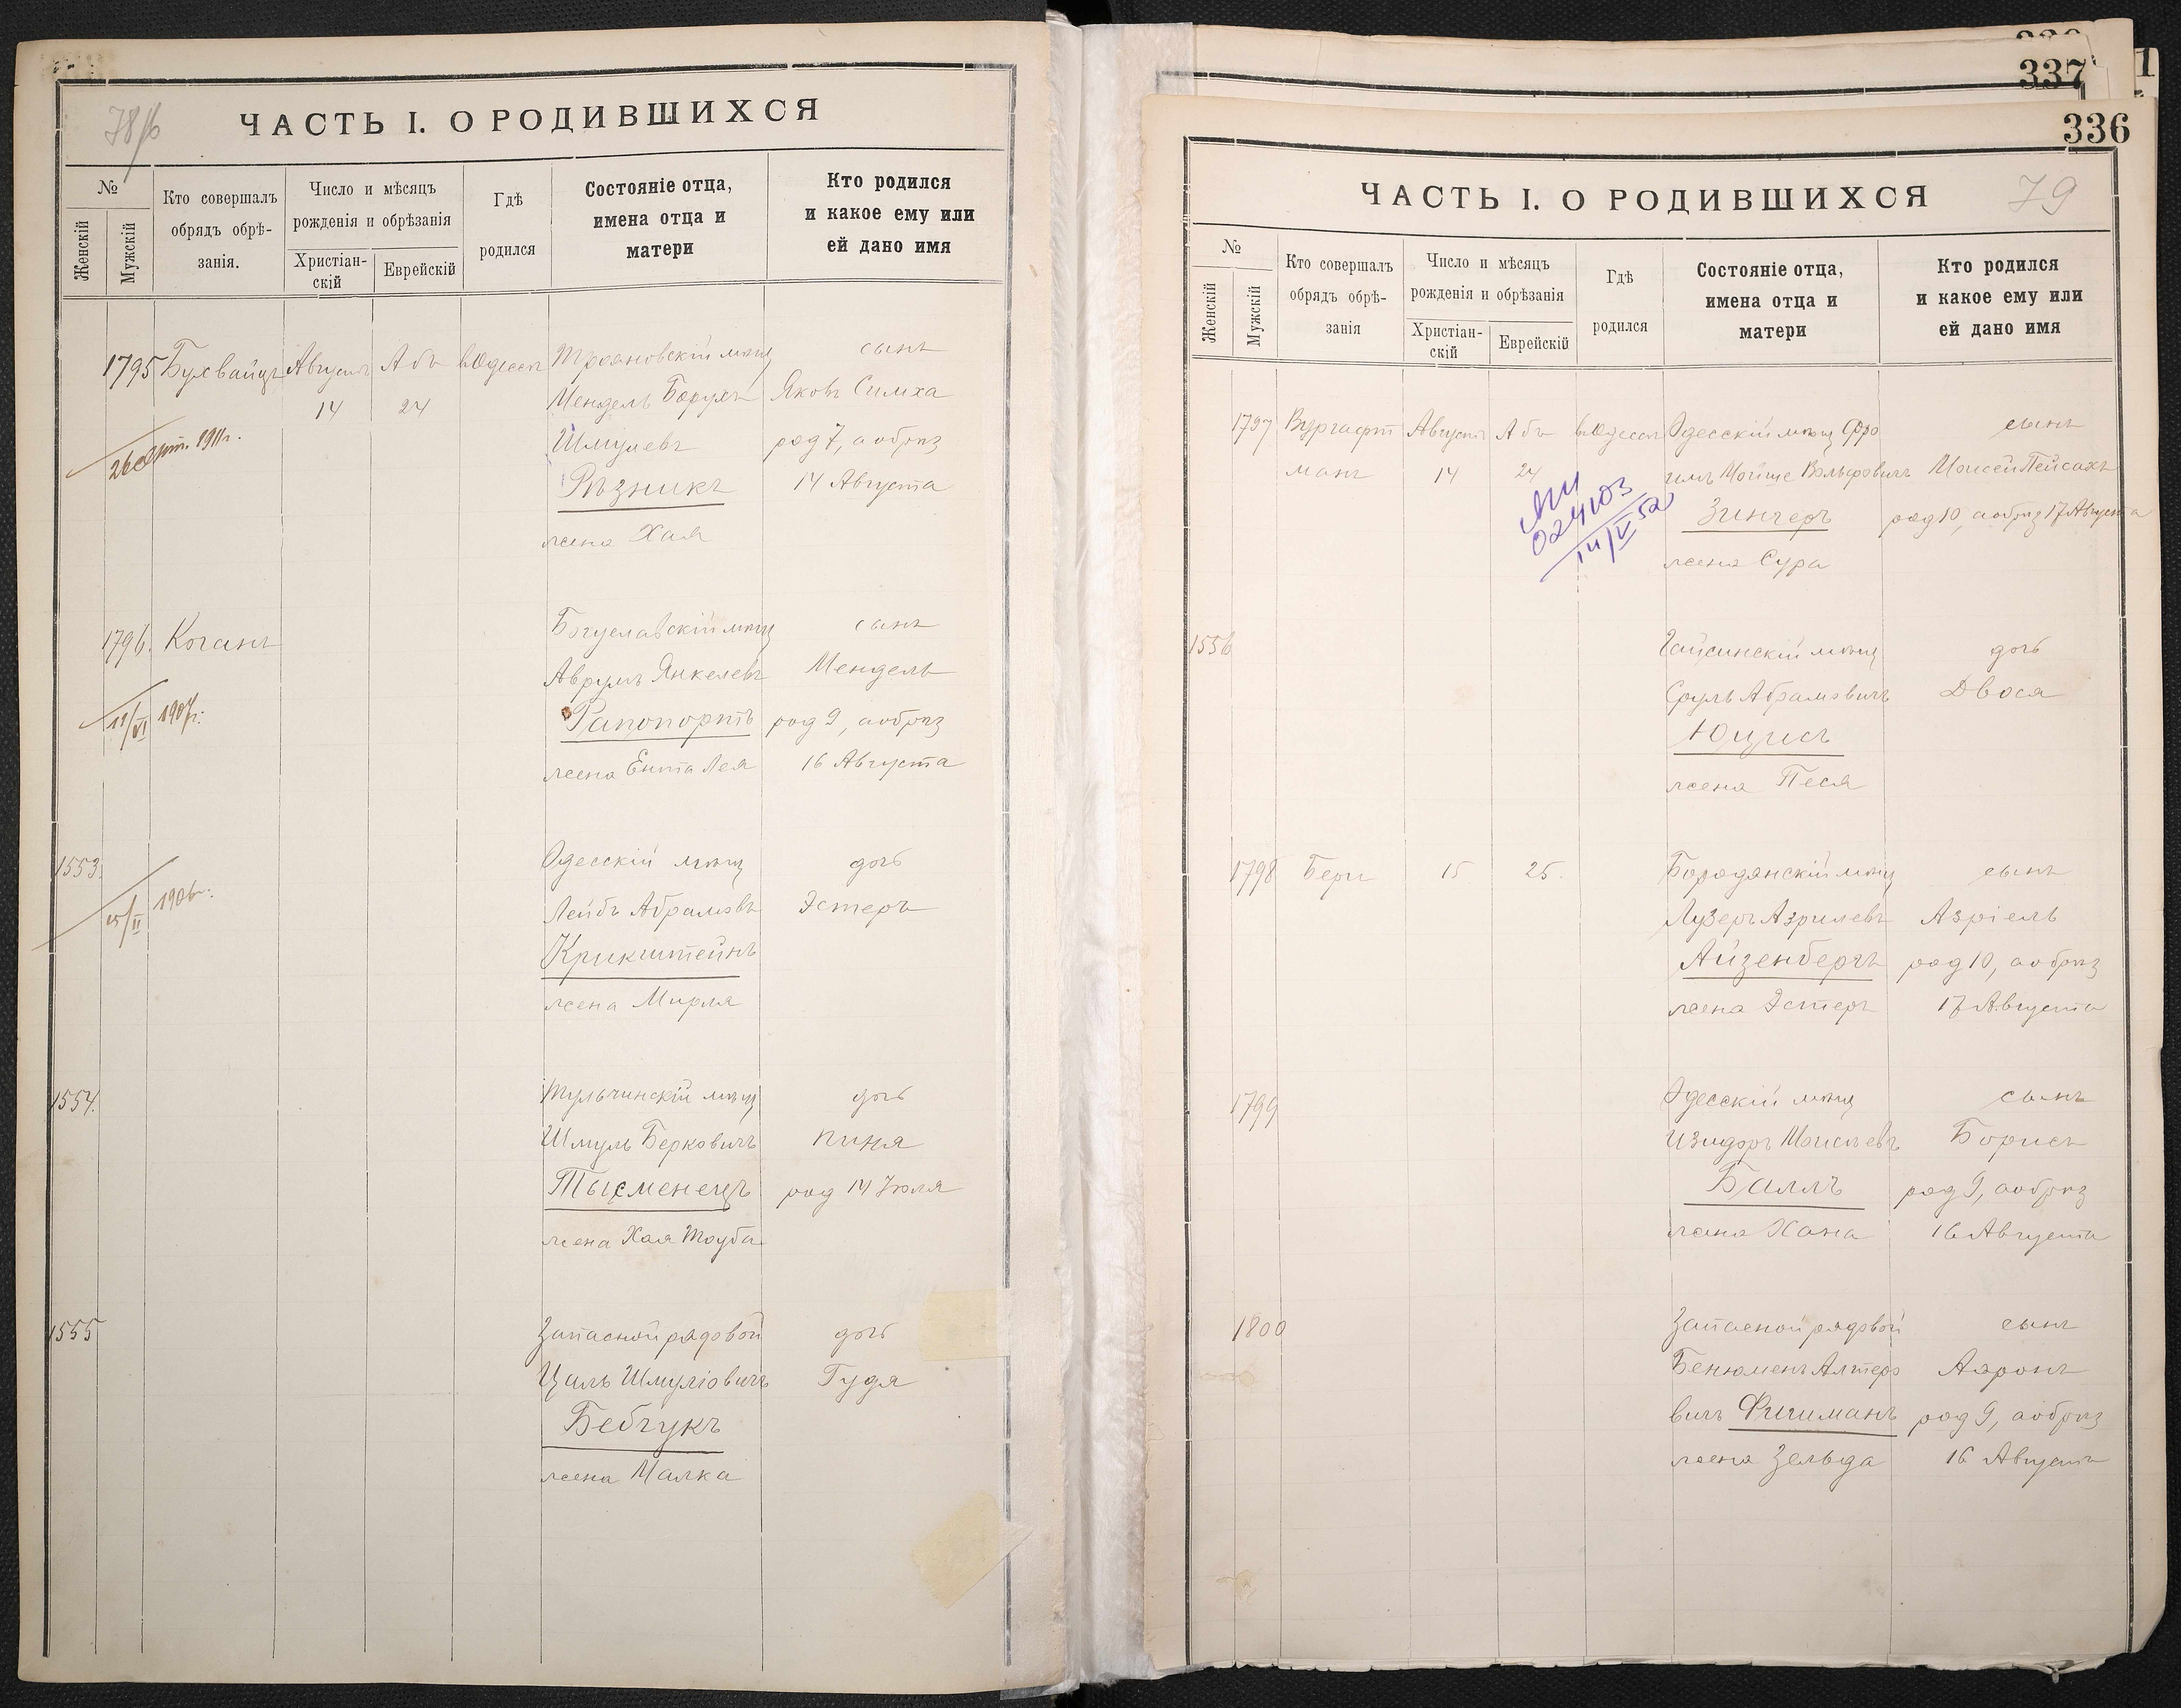 78/б
ЧАСТЬ I. О РОДИВШИХСЯ
№
Женскій
Мужскій
Кто совершалъ
обрядъ обрѣ-
занія.
Число и мѣсяцъ
рожденія и обрѣзанія
Христіан-
скій
Еврейскій
Гдѣ
родился
Состояніе отца,
имена отца и
матери
Кто родился
и какое ему или
ей дано имя
1795 Бухвайцъ Августъ Абъ въ Одессѣ Трояновскій мѣщ сынъ
14 24 Мендель Борухъ Яковъ Симха
26 1911г. Шмулевъ род 7, а обрѣз
Рѣзникъ 14 Августа
жена Хая
1796. Коганъ Богуславскій мѣщ сынъ
Аврумъ Янкелевъ Мендель
11/VI 1907г. Рапопортъ род 9, а обрѣз
жена Ента Лея 16 Августа
1553. Одесскій мѣщ дочь
1906г. Лейбъ Абрамовъ Эстеръ
Крикштейнъ
жена Мирля
1554. Тульчинскій мѣщ дочь
Шмуль Берковичъ Пиня
Тысменецъ род 14 Іюля
жена Хая Тауба
1555 Запасной рядовой дочь
Цаль Шмуліовичъ Гудя
Бебчукъ
жена Малка
337
336
ЧАСТЬ I. О РОДИВШИХСЯ
79
№
Женскій
Мужскій
Кто совершалъ
обрядъ обрѣ-
занія
Число и мѣсяцъ
рожденія и обрѣзанія
Христіан-
скій
Еврейскій
Гдѣ
родился
Состояніе отца,
имена отца и
матери
Кто родился
и какое ему или
ей дано имя
1797 Вургафт Августъ Абъ въ Одессѣ Одесскій мѣщ Фро сынъ
манъ 14 24 имъ Мойше Вольфовичъ Моисей Пейсахъ
024103 Зингеръ род 10, а обрѣз 17 Августа
жена Сура
1556 Гайсинскій мѣщ дочь
Сруль Абрамовичъ Двося
Юцисъ
жена Песя
1798 Бери 15 25. Бородянскій мѣщ сынъ
Лузеръ Азрилевъ Азріель
Айзенбергъ род 10, а обрѣз
жена Эстеръ 17 Августа
1799 Одесскій мѣщ сынъ
Изидоръ Моисѣевъ Борисъ
Баллъ род 9, а обрѣз
жена Хана 16 Августа
1800 Запасной рядовой сынъ
Бенюменъ Алтеро Ааронъ
вичъ Фишманъ род 9, а обрѣз
жена Зельда 16 Августа